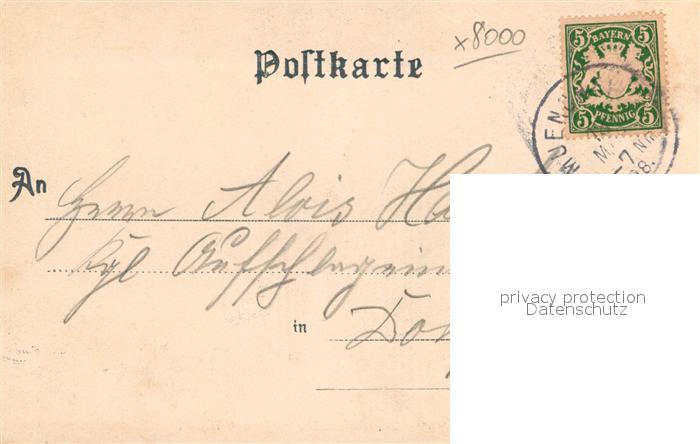 x8000
Postkarte
5 BAYERN 5
5 PFENNIG 5
UENCH
MAI
-7 NM
98.
An
Herrn Alois Ha
Kgl Aufschlagein
in Don
privacy protection
Datenschutz